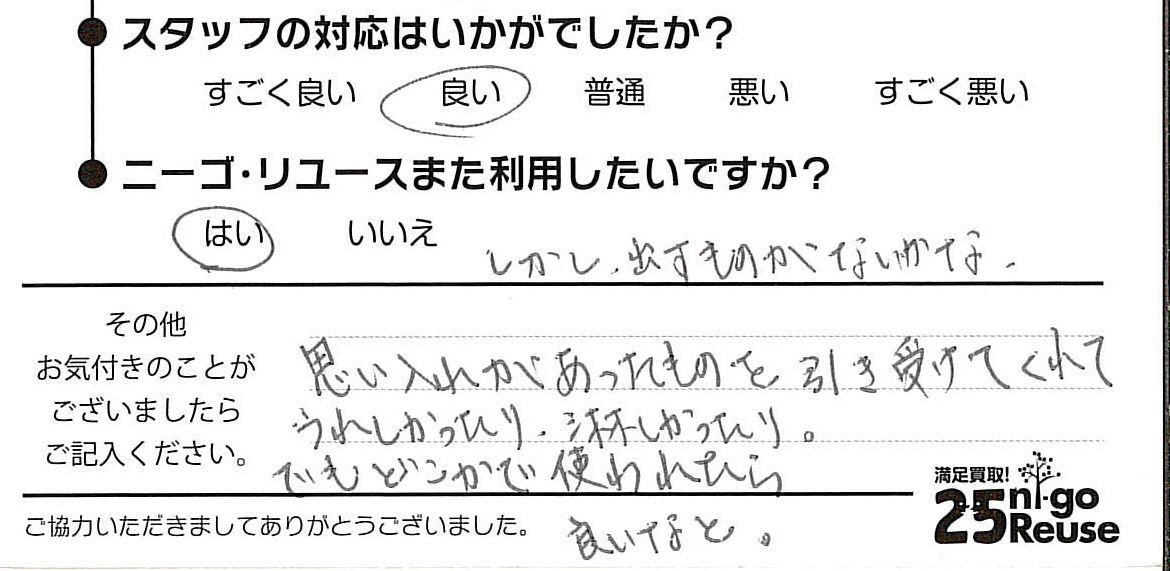 スタッフの対応はいかがでしたか?
すごく良い 良い 普通 悪い すごく悪い
ニーゴ・リユースまた利用したいですか?
はい いいえ
しかし、出すものがないかな。
その他
お気付きのことが
ございましたら
ご記入ください。
思い入れがあったものを引き受けてくれて
うれしかったり、淋しかったり。
でもどこかで使われたら
良いなと。
ご協力いただきましてありがとうございました。
満足買取!
25 ni-go
Reuse